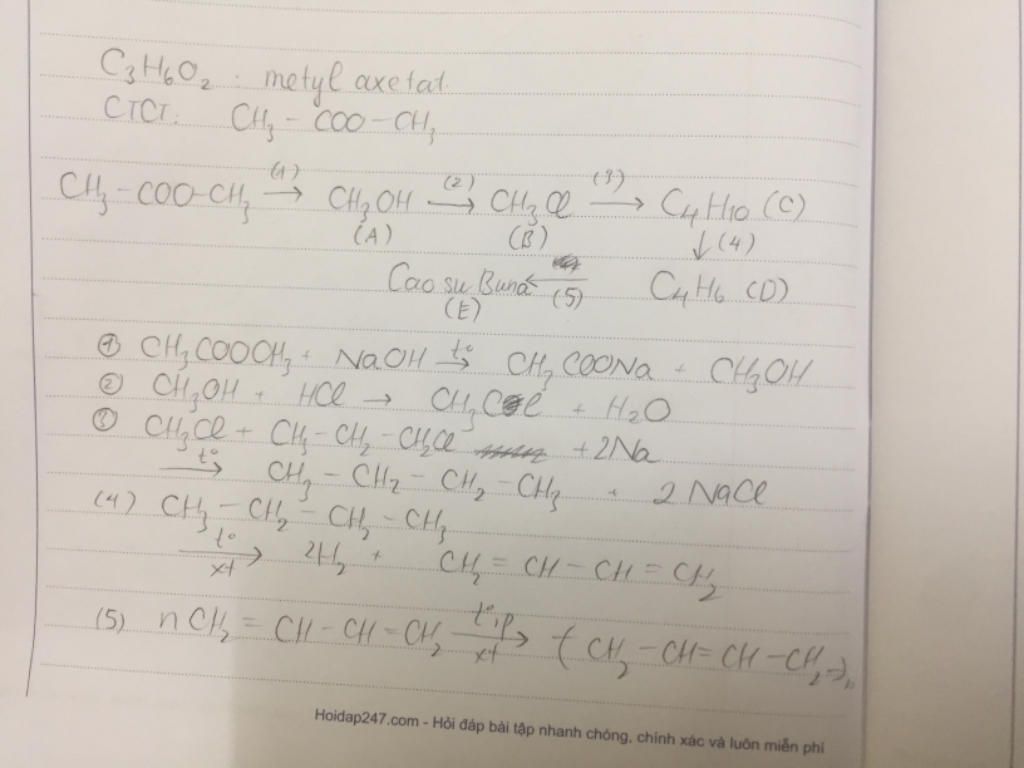 C₃H₆O₂ : metyl axetat.
CTCT: CH₃ - COO - CH₃
CH₃ - COO-CH₃ (1)→ CH₃OH (2)→ CH₃Cl (3)→ C₄H₁₀ (C)
(A) (B) ↓(4)
Cao su Buna ← (5) C₄H₆ (D)
(E)
① CH₃COOCH₃ + NaOH t°→ CH₃COONa + CH₃OH
② CH₃OH + HCl → CH₃Cl + H₂O
③ CH₃Cl + CH₃-CH₂-CH₂Cl + 2Na
t°→ CH₃ - CH₂ - CH₂ - CH₃ + 2NaCl
(4) CH₃ - CH₂ - CH₂ - CH₃
t° xt→ 2H₂ + CH₂ = CH - CH = CH₂
(5) nCH₂ = CH - CH = CH₂ t°,p xt→ (CH₂ - CH = CH - CH₂-)ₙ
Hoidap247.com - Hỏi đáp bài tập nhanh chóng, chính xác và luôn miễn phí